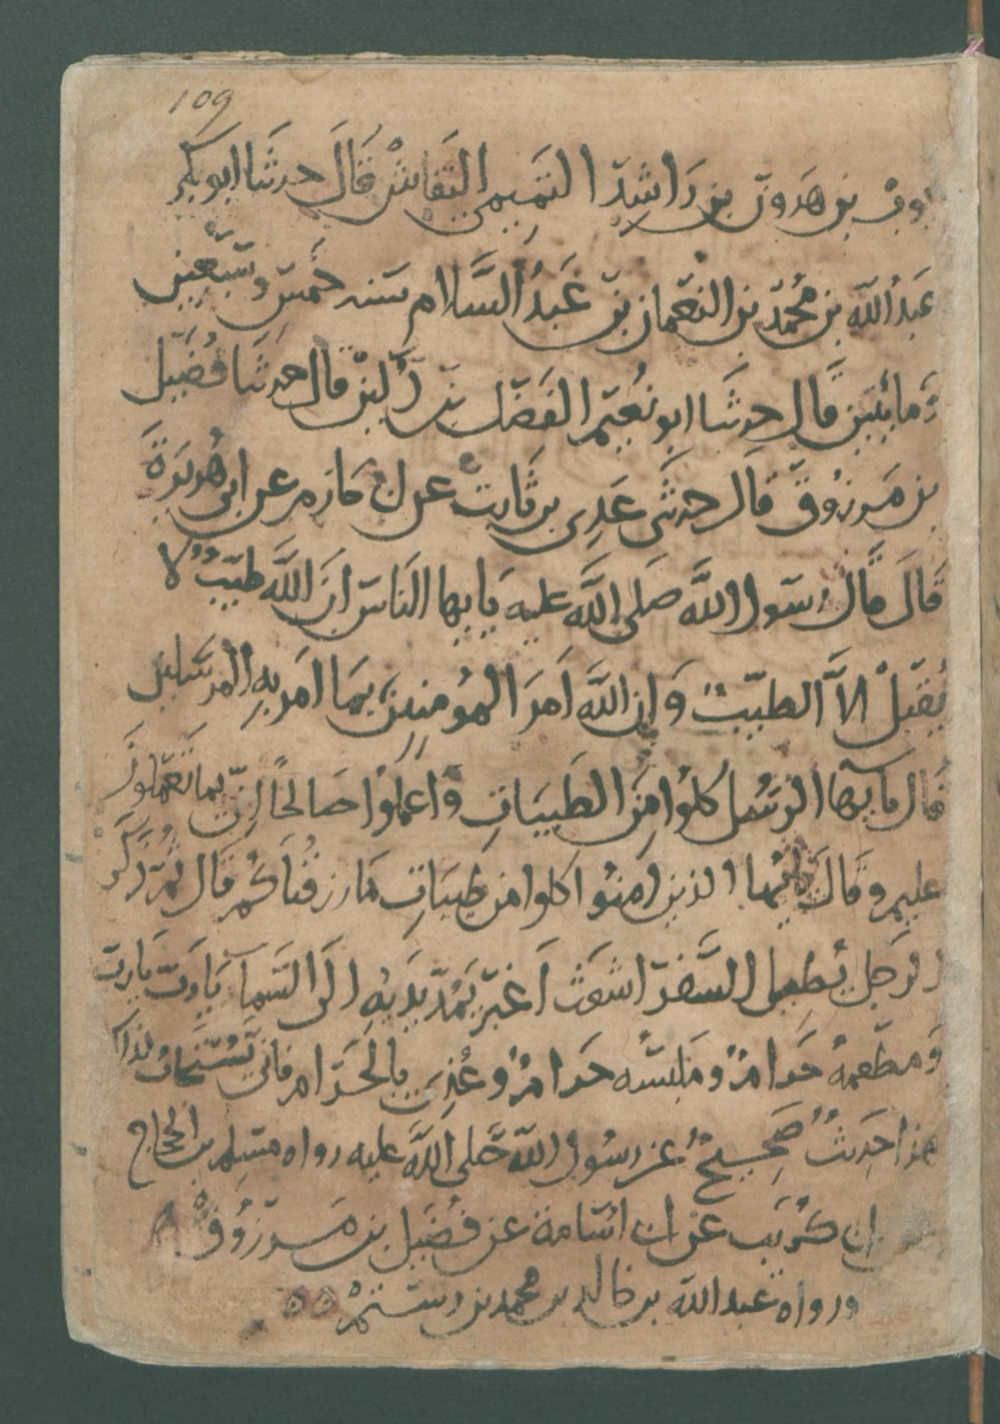 109
بن هرون بن راشد التميمي النقاش قال حدثنا ابو بكر
عبد الله بن محمد بن النعمان بن عبد السلام سنه خمس وسبعين
ومائتين قال حدثنا ابو نعيم الفضل بن دكين قال حدثنا فضيل
بن مرزوق قال حدثني عدي بن ثابت عن ابي حازم عن ابي هريرة
قال قال رسول الله صلى الله عليه يا يها الناس ان الله طيب لا
يقبل الا الطيب وان الله امر المومنين بما امر به المرسلين
قال يا يها الرسل كلوا من الطيبات واعملوا صالحا اني بما تعملون
عليم وقال يا يها الذين امنوا كلوا من طيبات ما رزقناكم قال ثم ذكر
الرجل يطيل السفر اشعث اغبر يمد يديه الى السماء يا رب يا رب
ومطعمه حرام وملبسه حرام وغذي بالحرام فانى يستجاب لذلك
هذا حديث صحيح عن رسول الله صلى الله عليه رواه مسلم بن الحجاج
ابي كريب عن ابي اسامة عن فضيل بن مرزوق
ورواه عبد الله بن خالد بن محمد بن رستم ٥٥